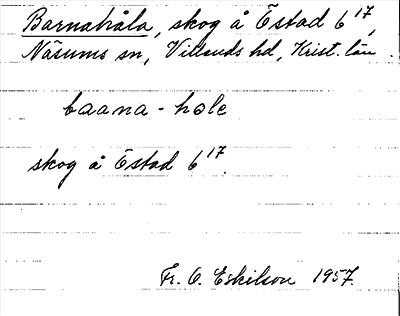 Barnahåla, skog å Östad 6¹⁷,
Näsums sn, Villands hd, Krist. län.
baana-hole
skog å Östad 6¹⁷.
Fr. O. Eskilson 1957.